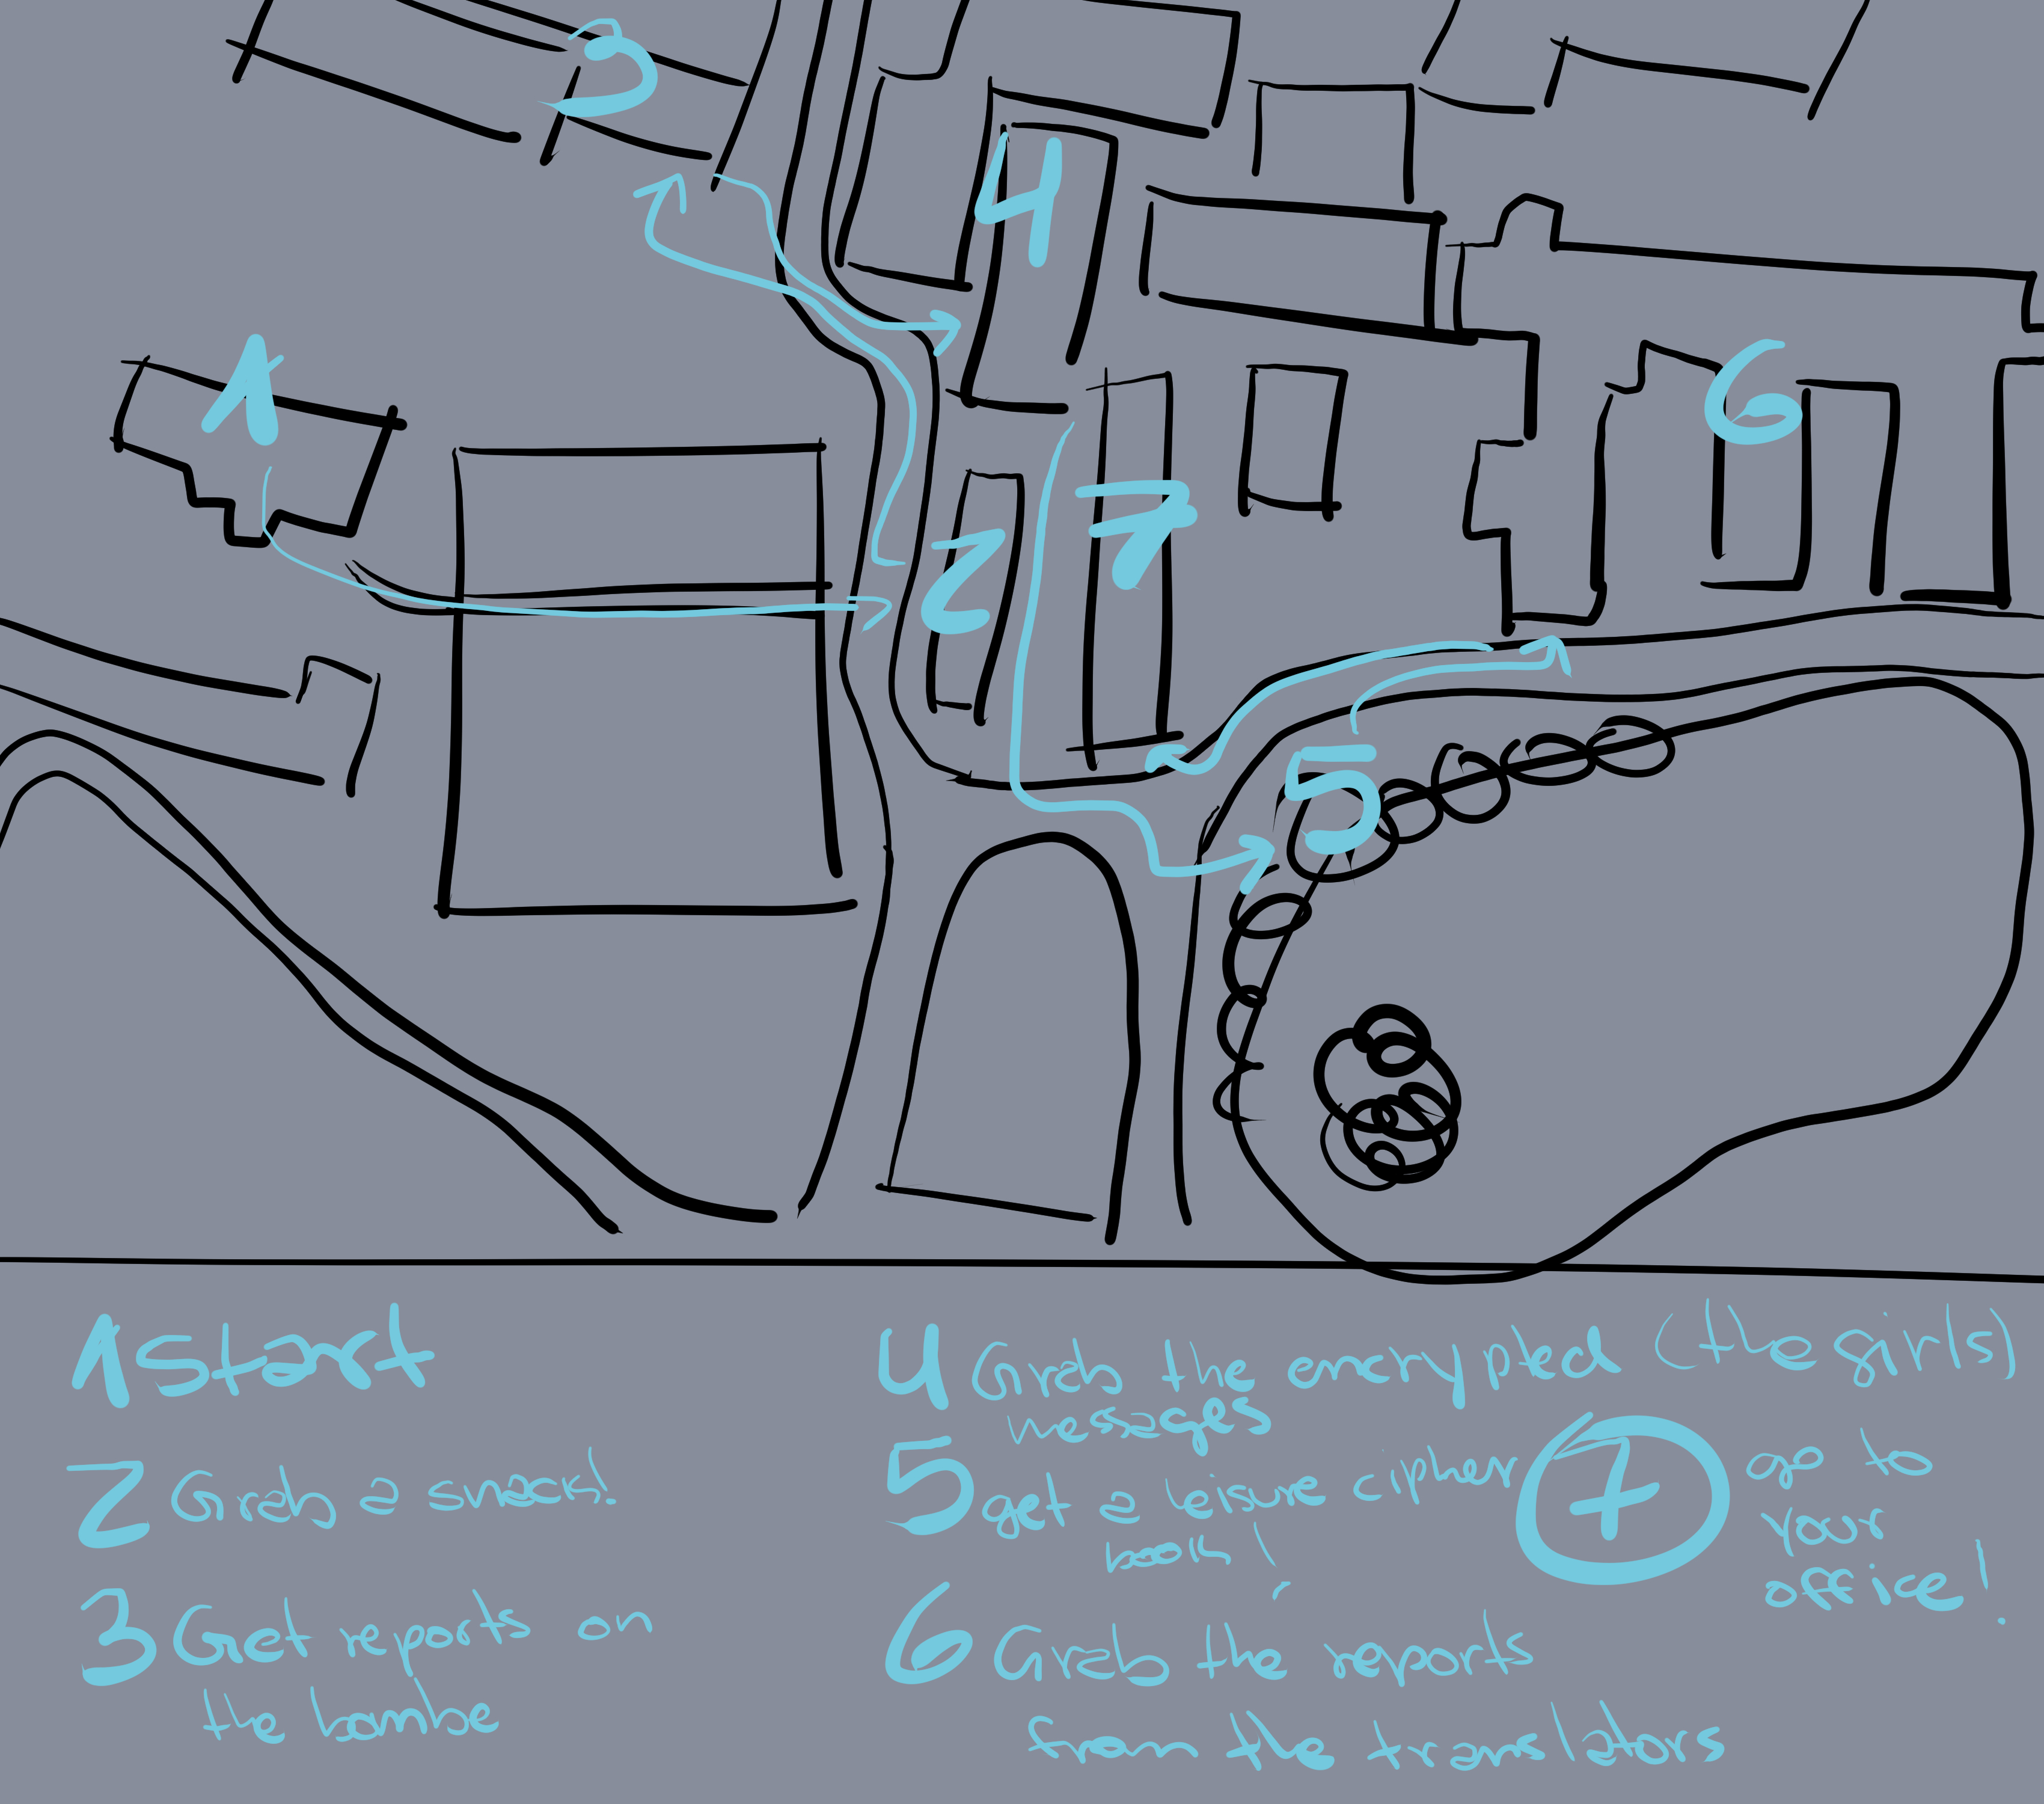 3
4
1
6
7
2
5
1 start
2 Grab a snack.
3 Get reports on
the bombe
4 Grab the encrypted (the girls)
messages
5 get a leisure activity
break!
6 Grab the reports
from the translators
7 go to
your
office!